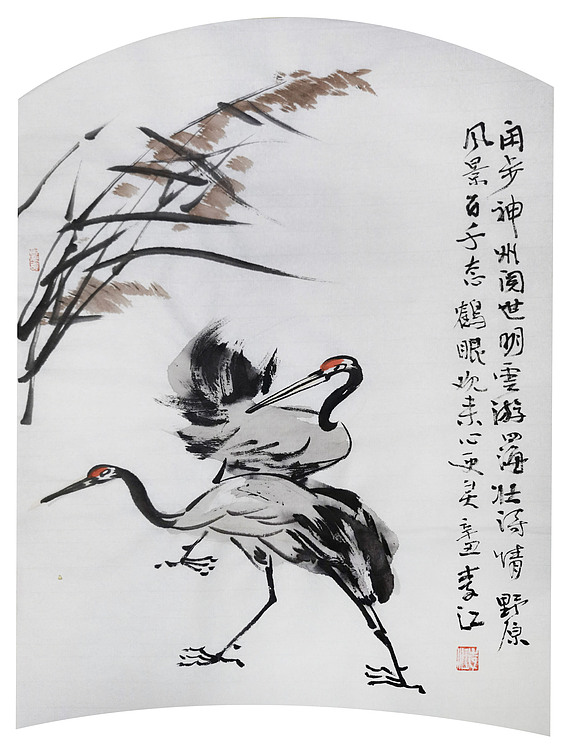 闲步神州阅世明雲游四海壮诗情野原
风景百千态鶴眼观来心更灵辛丑李江